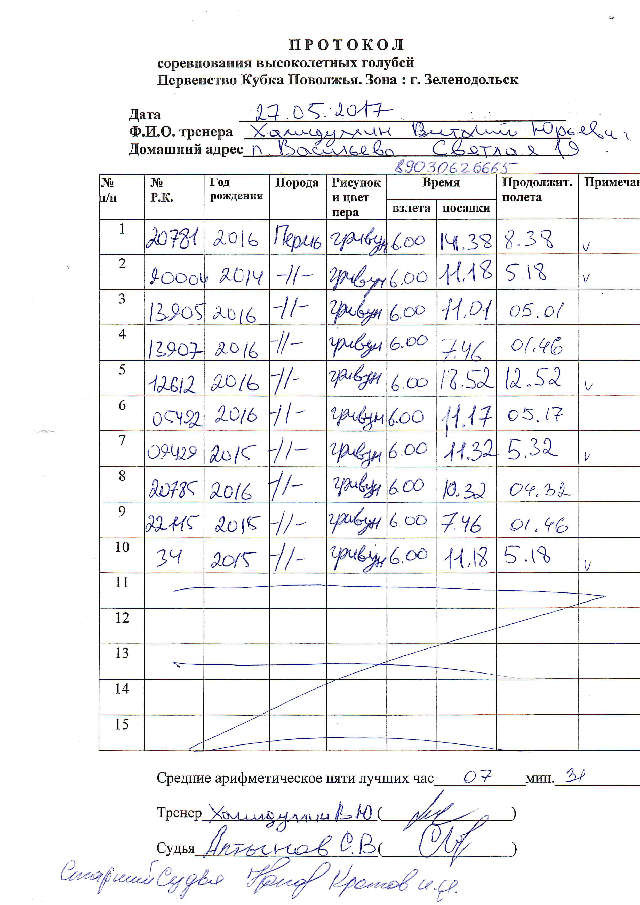 ПРОТОКОЛ
соревнования высоколетных голубей
Первенство Кубка Поволжья. Зона : г. Зеленодольск
Дата 27.05.2017
Ф.И.О. тренера Хамидуллин Виталий Юрьевич
Домашний адрес п. Васильево Светлая 19
89030626665
№ п/п № Р.К. Год рождения Порода Рисунок и цвет пера Время Продолжит. полета Примечан
взлета посадки
1 20781 2016 Пермь гривун 6.00 14.38 8.38 v
2 20004 2014 -//- гривун 6.00 11.18 5 18 v
3 13905 2016 -//- гривун 6.00 11.01 05.01
4 13907 2016 -//- гривун 6.00 7.46 01.46
5 12612 2016 -//- гривун 6.00 18.52 12.52 v
6 05492 2016 -//- гривун 6.00 11.17 05.17
7 09429 2015 -//- гривун 6.00 11.32 5.32 v
8 20785 2016 -//- гривун 6.00 10.32 04.32
9 22115 2015 -//- гривун 6 00 7.46 01.46
10 34 2015 -//- гривун 6.00 11.18 5.18 v
11
12
13
14
15
Средние арифметическое пяти лучших час 07 мин. 31
Тренер Хамидуллин В.Ю ( )
Судья С.В ( )
Старший Судья Кротов